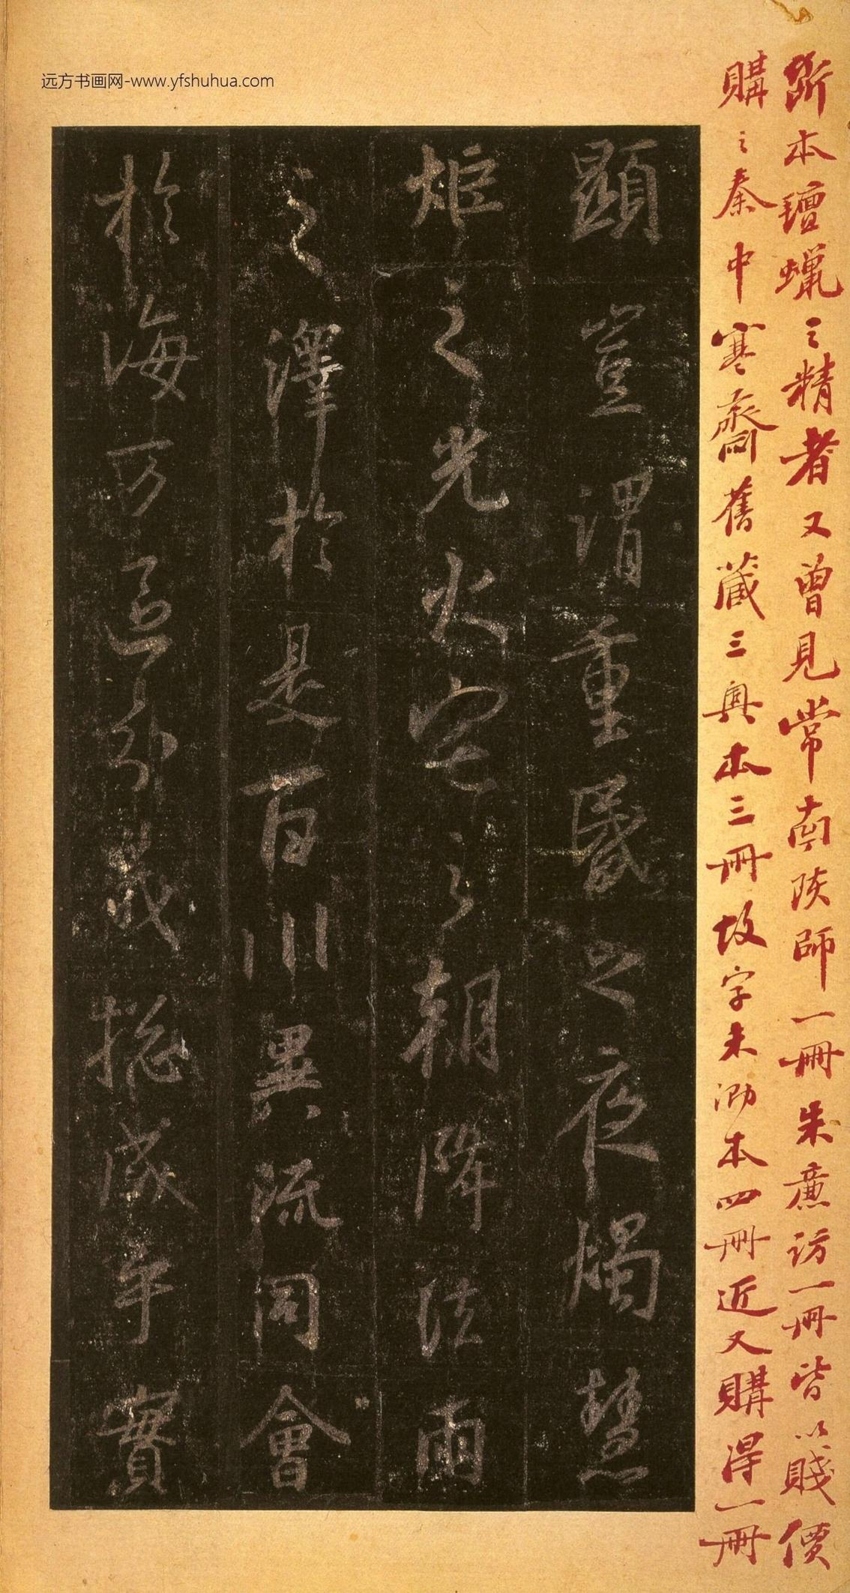 斷本氊蠟之精者又曾見常南陔師一冊朱廉訪一冊皆以賤價
購之秦中寒齋舊藏三奧本三冊故字未泐本四冊近又購得一冊
顯豈謂重昬之夜燭慧
炬之光火宅之朝降法雨
之澤於是百川異流同會
於海万區分義揔成乎實
远方书画网-www.yfshuhua.com